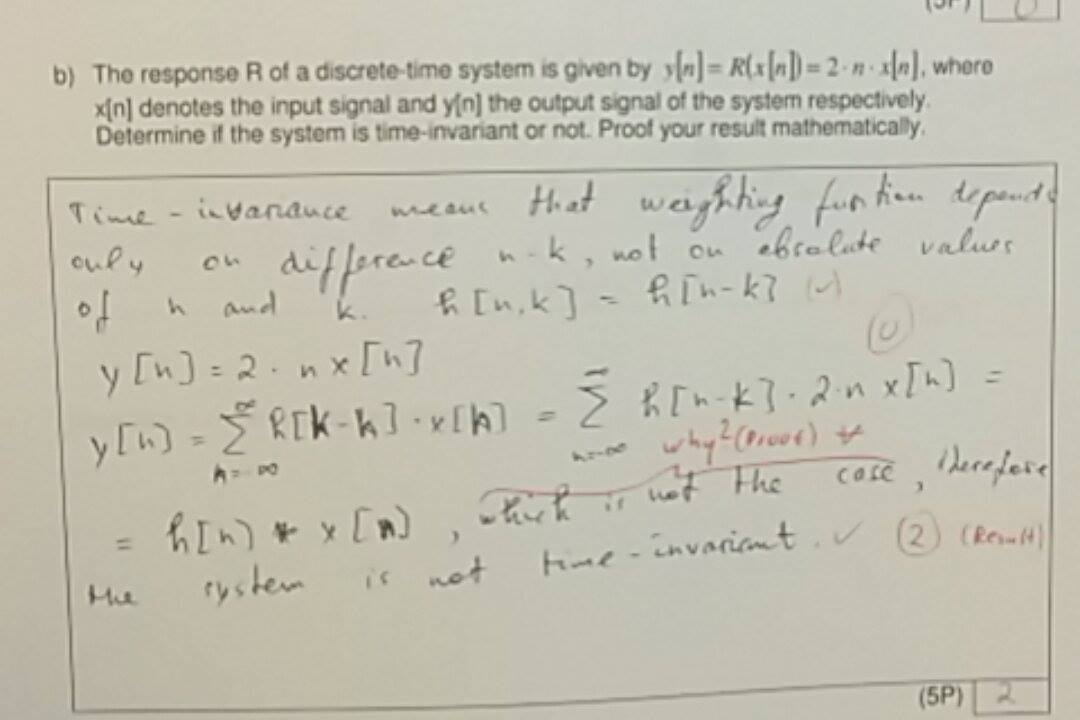 (5P) 0
b) The response R of a discrete-time system is given by y[n] = R(x[n]) = 2 · n · x[n], where
x[n] denotes the input signal and y[n] the output signal of the system respectively.
Determine if the system is time-invariant or not. Proof your result mathematically.
Time - invariance means that weighting funtion depends
only on difference n-k, not on absolute values
of n and k. h[n,k] = h[n-k] (✓)
(0)
y[n] = 2 · n x[n]
y[n] = ∑ h[k-n] · x[n] = ∑ h[n-k] · 2·n x[n] =
n=-∞ n=-∞ why? (Proof)
= h[n] * x[n], which is not the case, therefore
the system is not time-invariant. ✓ (2) (Result)
(5P) 2